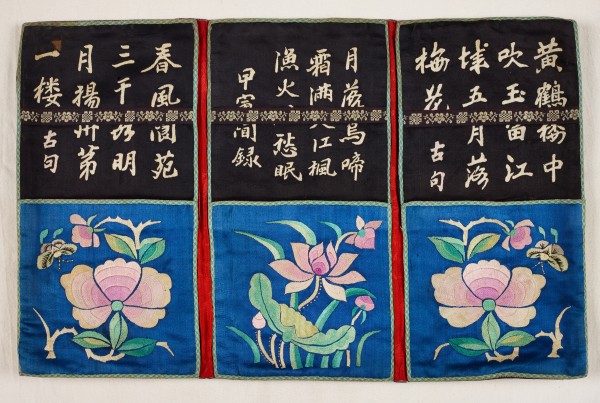 黄鶴楼中
吹玉笛江
城五月落
梅花 古句
月落烏啼
霜满天江楓
渔火愁眠
甲寅间録
春風閬苑
三千客明
月揚州第
一楼 古句